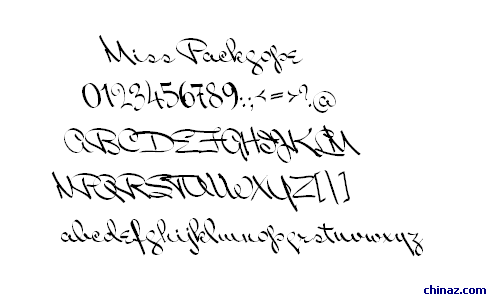 Miss Packgope
0123456789:;<=>?@
ABCDEFGHIJKLM
NOPQRSTUVWXYZ[\]
abcdefghijklmnopqrstuvwxyz
chinaz.com